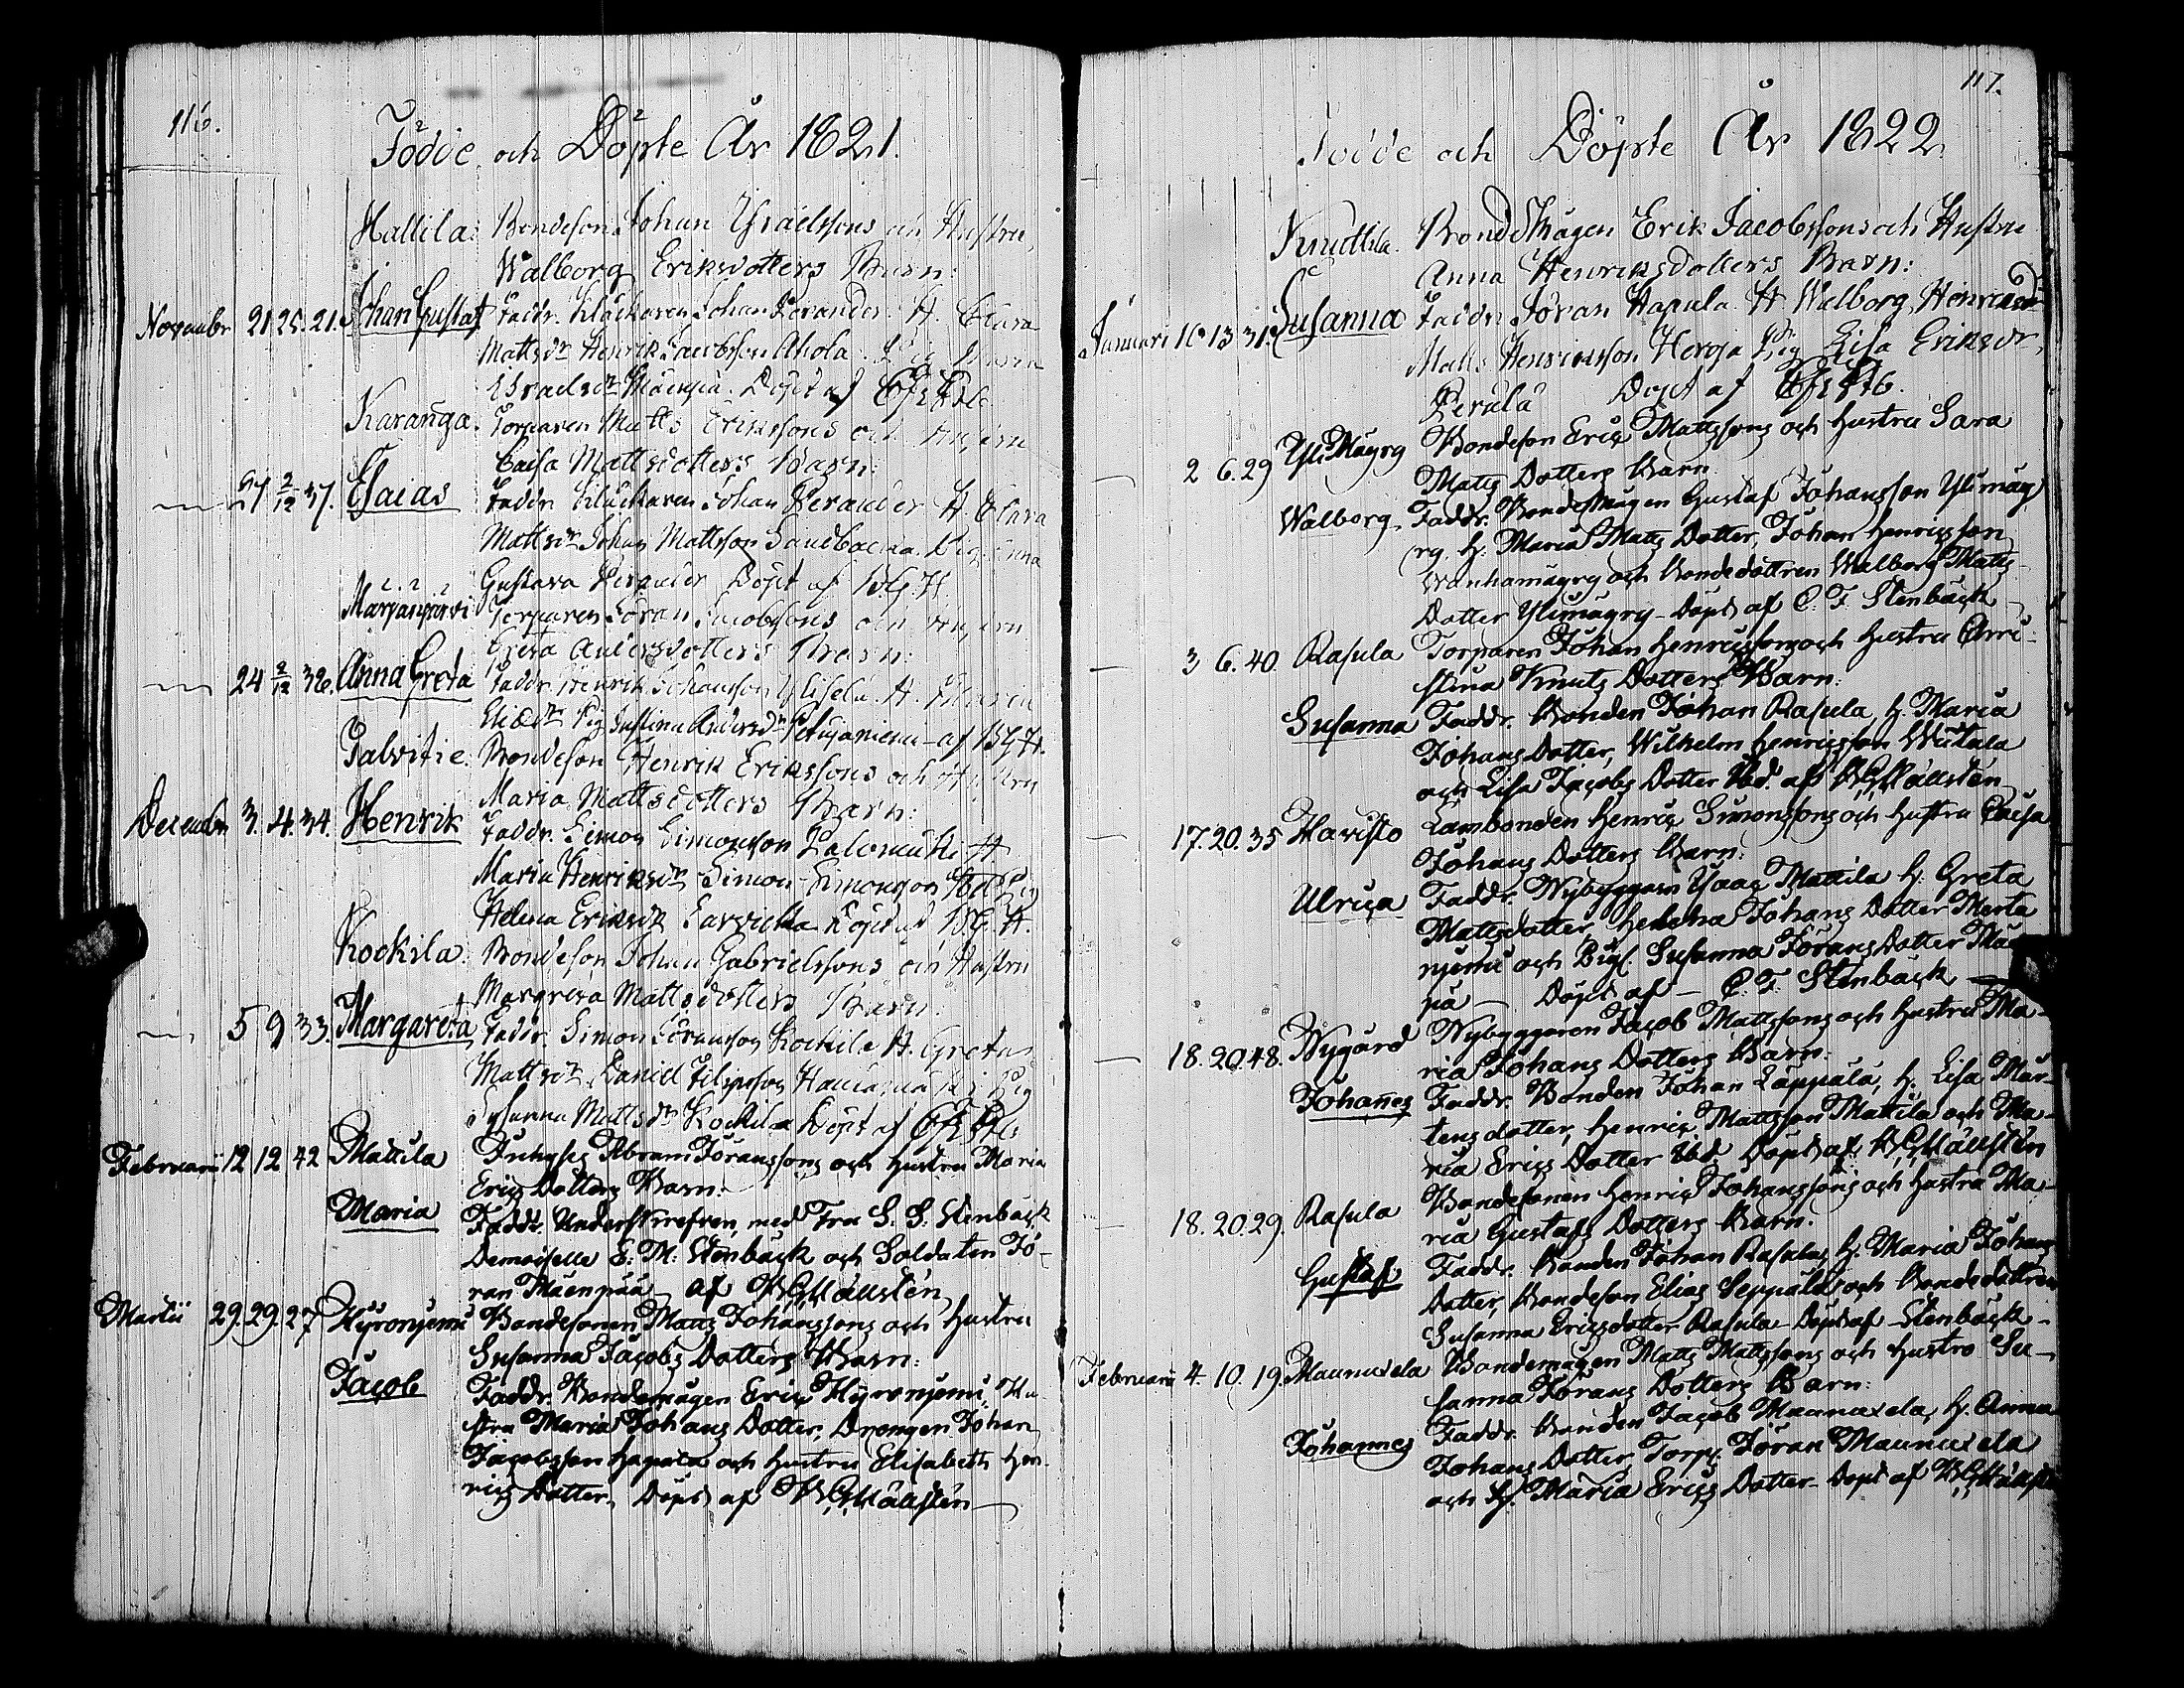 116.
Födde och Döpte År 1821.
Hallila. Bondeson Johan Israelssons och Hustru
Walborg Eriksdotters Barn:
November 21 25. 21. Johan Gustaf Faddr. Klockaren Johan Verander H. Clara
Mattsdr Henrik Jacobsson Ahola. Pig. Maria
Israelsdr Mäenpää. Döpt af
Karanga. Torparen Matts Erikssons och Hustru
Caisa Mattsdotters Barn:
27 2/12 37. Esaias Faddr. Klockaren Johan Verander H. Clara
Mattsdr Johan Mattsson Sandbacka. Pig. Anna
Gustava Verander Döpt af
Torparen Jöran Jacobssons och Hustru
Greta Andersdotters Barn:
24 2/12 36. Anna Greta Faddr. Henrik Johansson Ylisela. H. Maria
Eliædr Pig Justina Andersdr
Palvitie. Bondeson Henrik Erikssons och Hustru
Maria Mattsdotters Barn:
December 3. 4. 34. Henrik Faddr. Simon Simonsson Palomäki H.
Maria Henriksdr Simon Simonsson Pig
Helena Eriksdr Döpt af
Kockila. Bondeson Johan Gabrielssons och Hustru
Margreta Mattsdotters Barn:
5 9 33. Margareta Faddr. Simon Göransson Kockila H. Greta
Mattsdr. Daniel Filipsson Pig
Susanna Mattsdr Kockila Döpt af
Februarii 12 12 42 Mattila Inhyses Abram Jöranssons och Hustru Maria
Erics Dotters Barn:
Maria Faddr. Underskrefven, med Fru S. S. Stenbäck
Demoiselle E. M. Stenbäck och Soldaten Jö-
ran Mäenpää af
Martii 29. 29. 27 Hyronjemi Bondesonen Matts Johanssons och Hustru
Susanna Jacobs Dotters Barn:
Jacob Faddr. Bondemågen Eric Hyronjemi, Hu-
stru Maria Johans Dotter, Drengen Johan
Jacobsson Hapala och Hustru Elisabeth Hen-
rics Dotter, Döpt af
117.
Födde och Döpte År 1822
Knuttila. Bondemågen Erik Jacobssons och Hustru
Anna Henriksdotters Barn:
Januari 10 13 31. Susanna Faddr. Jöran Hapula H Walborg Henriksdr
Matts Henriksson Herrga Pig Lisa Eriksdr,
Perälä Döpt af
2 6. 29 Yli Mäyry Bondeson Eric Mattssons och Hustru Sara
Matts Dotters Barn
Walborg Faddr. Bondemågen Gustaf Johansson Ylimäy-
ry. H. Maria Matts Dotter, Johan Henricsson
Wanhamäyry och Bondedottren Walborg Matts-
Dotter Ylimäyry - Döpt af C. F. Stenbäck
3 6. 40. Rasula Torparen Johan Henricssons och Hustru Chri-
stina Knuts Dotters Barn:
Susanna Faddr. Bonden Johan Rasula, H. Maria
Johans Dotter, Wilhelm Henricsson Wiitala
och Lisa Jacobs Dotter Ibd. af
17. 20. 35 Havisto Lambonden Henric Simonssons och Hustru Caisa
Johans Dotters Barn:
Ulrica Faddr. Nybyggarn Isaac Mattila H. Greta
Mattsdotter, Helena Johans Dotter
och Pig. Susanna Jörans Dotter Mäen-
pä - Döpt af - C. F. Stenbäck
18. 20. 48. Nygård Nybyggaren Jacob Mattssons och Hustru Ma-
ria Johans Dotters Barn:
Johannes Faddr. Bonden Johan Lappala, H. Lisa Mår-
tens dotter, Henric Mattsson Mattila och Ma-
ria Erics Dotter Ibd. Döpt af
18. 20. 29. Rasula Bondesonen Henric Johanssons och Hustru Ma-
ria Gustafs Dotters Barn.
Gustaf Faddr. Bonden Johan Rasula, H. Maria Johans
Dotter, Bondeson Elias Seppälä och Bondedottren
Susanna Ericsdotter Rasula - Döpt af Stenbäck -
Februarii 4. 10. 19. Maunuxela Bondemågen Matts Mattssons och Hustru Su-
sanna Jörans Dotters Barn:
Johannes Faddr. Bonden Jacob Maunuxela, H. Anna
Johans Dotter, Torp. Jöran Maunuxela
och H. Maria Erics Dotter - Döpt af